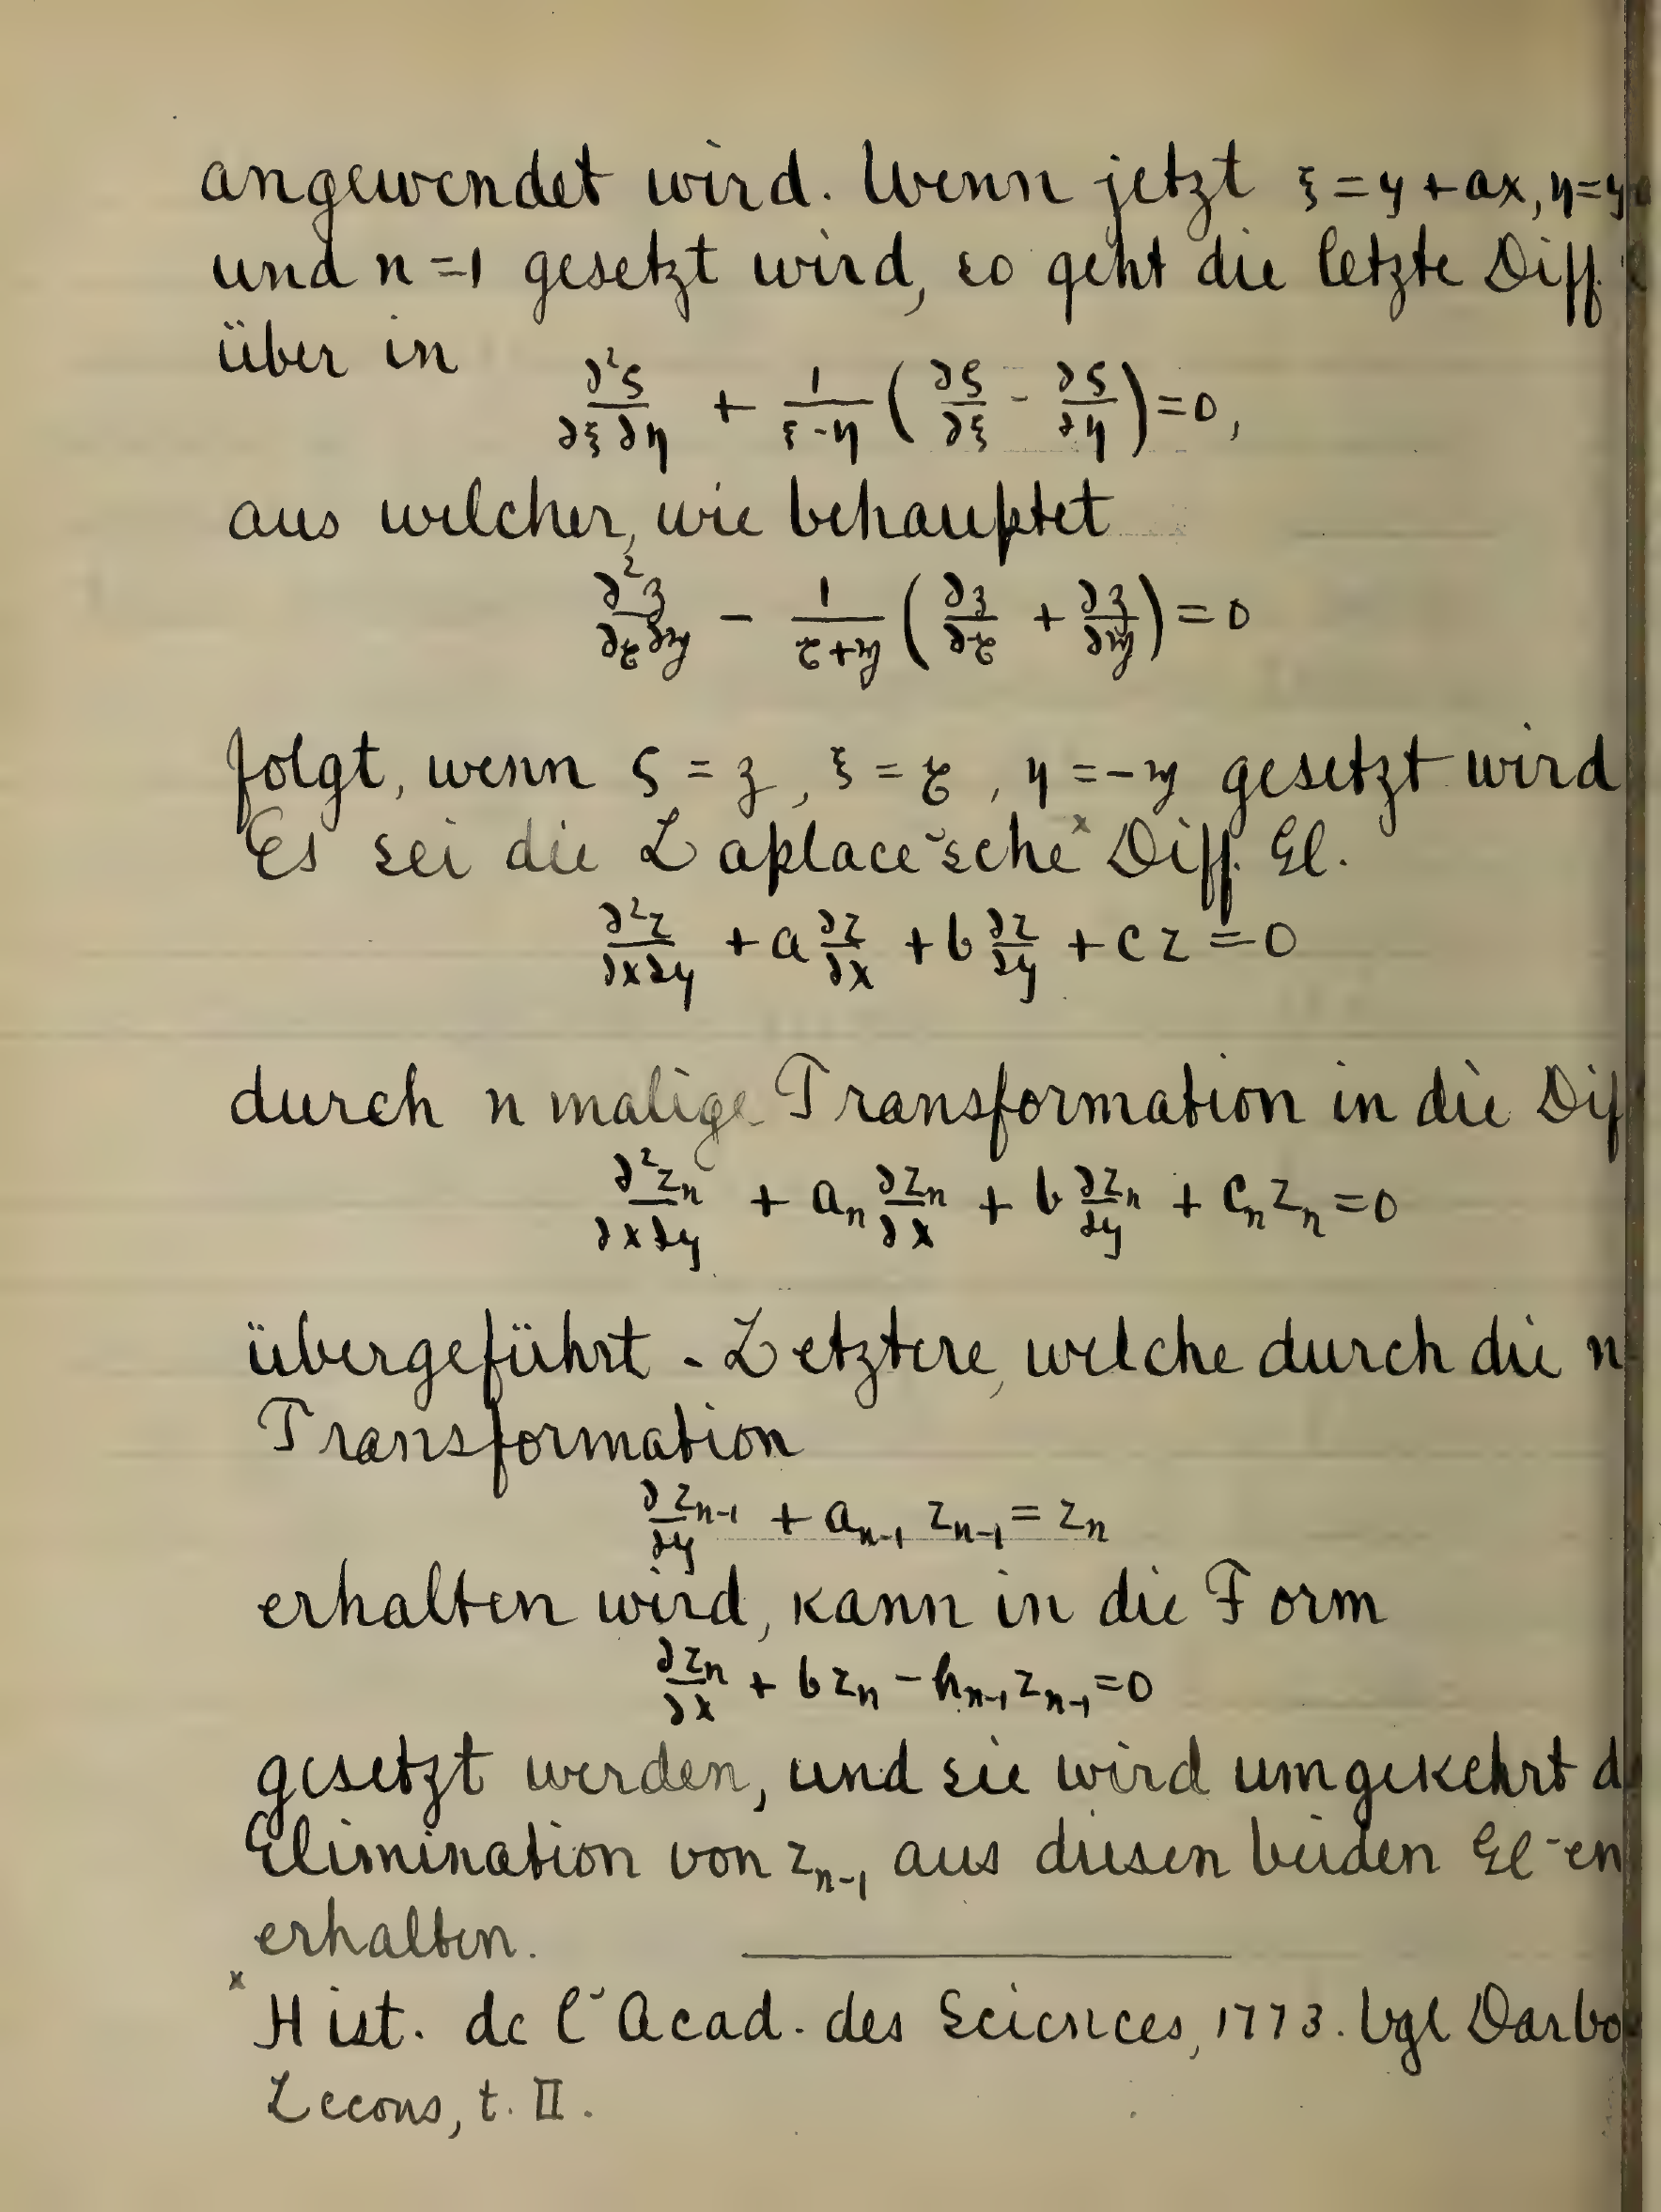 angewendet wird. Wenn jetzt ξ = y + ax, η = y
und n = 1 gesetzt wird, so geht die letzte Diff.
über in
∂²ζ/∂ξ∂η + 1/(ξ-η) (∂ζ/∂ξ - ∂ζ/∂η) = 0,
aus welcher, wie behauptet
∂²𝔷/∂𝔵∂𝔶 - 1/(𝔵+𝔶) (∂𝔷/∂𝔵 + ∂𝔷/∂𝔶) = 0
folgt, wenn ζ = 𝔷, ξ = 𝔵, η = -𝔶 gesetzt wird
Es sei die Laplace'sche ˣ Diff. Gl.
∂²z/∂x∂y + a ∂z/∂x + b ∂z/∂y + cz = 0
durch n malige Transformation in die Dif
∂²zₙ/∂x∂y + aₙ ∂zₙ/∂x + b ∂zₙ/∂y + cₙzₙ = 0
übergeführt. Letztere, welche durch die n
Transformation
∂zₙ₋₁/∂y + aₙ₋₁ zₙ₋₁ = zₙ
erhalten wird, kann in die Form
∂zₙ/∂x + bzₙ - hₙ₋₁zₙ₋₁ = 0
gesetzt werden, und sie wird umgekehrt d
Elimination von zₙ₋₁ aus diesen beiden Gl-en
erhalten.
ˣ Hist. de l'Acad. des Sciences, 1773. Vgl Darbo
Lecons, t. II.